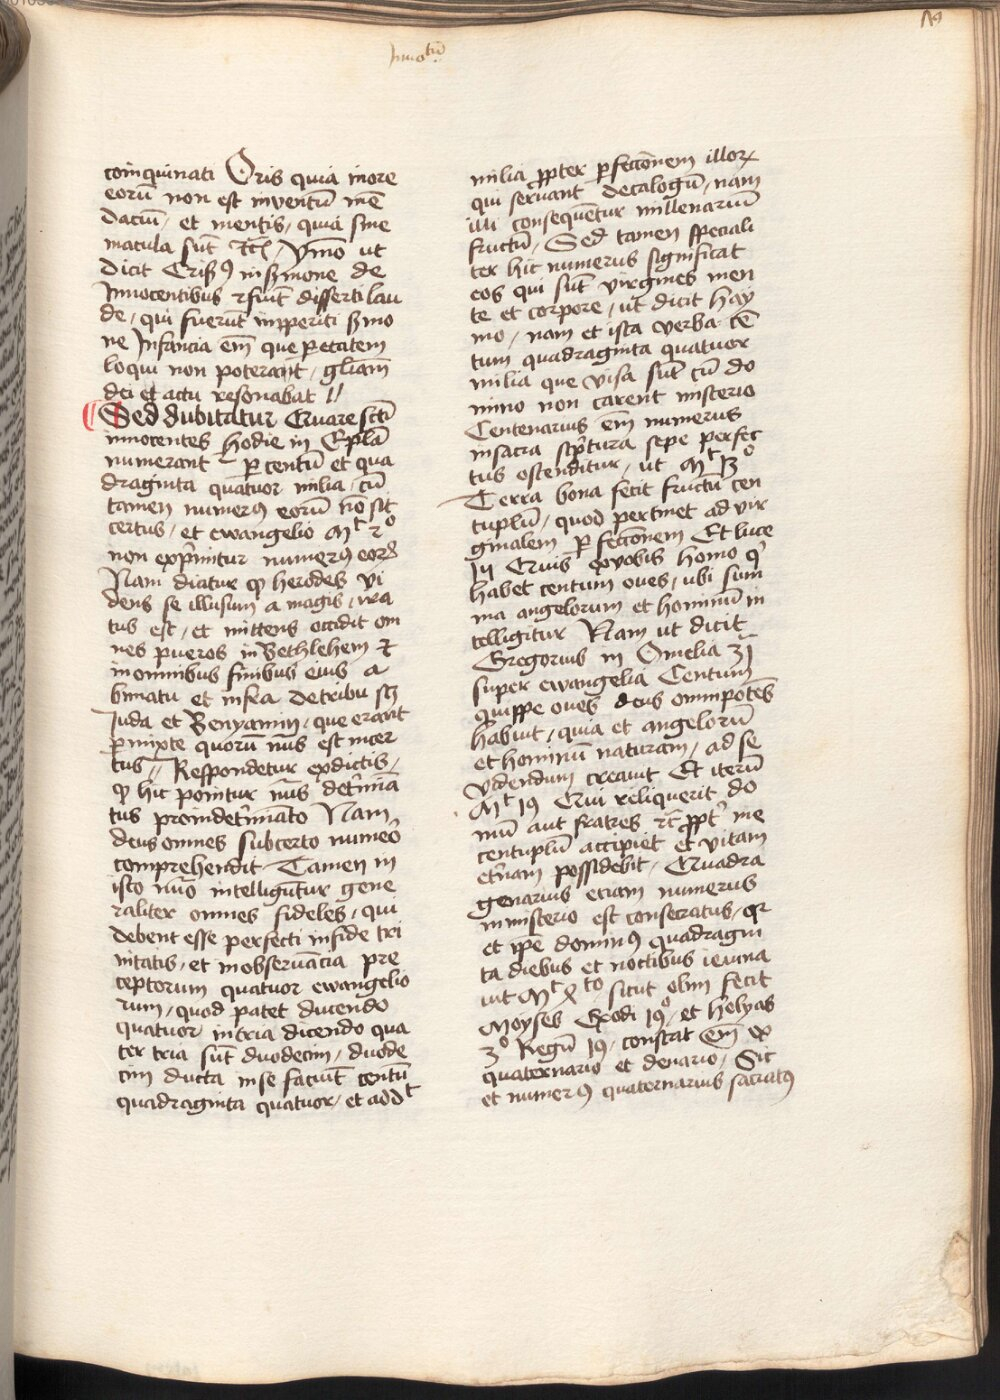 Innocentum
coinquinati Oris quia inore
eorū non est inventū mē
daciū, et mentis, quia sine
macula sūt Ymō ut
dicit Crisꝰ in sermone de
Innocentibus ꝛ fiūt disserti lau
de, qui fuerūt inpperiti smo
ne Infancia em̄ que p etatem
loqui non poterant, gliam
dei et actu resonabat //
Sed dubitatur Quare scti
innocentes hodie in Epl̄a
numerant̄ p centū et qua
draginta quatuor milia, cū
tamen numerꝰ eorū nō sit
certus, et ewangelio Mt 2o
non exprimitur numerꝰ eorꝝ
Nam dicitur ꝙ herodes vi
dens se illusum a magis, ira
tus est, et mittens occidit om
nes pueros in Bethlehem et
in omnibus finibus eius a
bimatu et infra de tribu sꝫ
Iuda et Benyamin, que erant
pmixte quorū nūs est incer
tus // Respondetur ex dictis,
ꝙ hic ponitur nūs detͬmīa
tus pro indetͬmīato Nam
deus omnes sub certo numeō
comprehendit Tamen in
isto nūo intelligūtur gene
raliter omnes fideles, qui
debent esse perfecti in fide tri
nitatis, et in observācia pre
ceptorum quatuor ewangelio
rum, quod patet ducendo
quatuor in tria dicendo qua
ter tria sūt duodecim, duode
cim ducta in se faciūt centū
quadraginta quatuor, et addt
milia ppter pfeccōnem illorꝝ
qui servant decalogū, nam
illi consequētur millenariū
fructū, Sed tamen speciali
ter hic numerus significat
eos qui sūt virgines men
te et corpore, ut dicit hay
mo, nam et ista verba cē
tum quadraginta quatuor
milia que visa sūt cū do
mino non carent misterio
Centenarius em̄ numerus
in sacra scptura sepe perfec
tus ostenditur, ut Mt 13o
Terra bona fecit fructū cen
tuplū, quod pertinet ad vir
ginalem pfeccōnem Et luce
Quis ex vobis homo qͥ
habet centum oves, ubi sum
ma angelorum et hominū in
telligitur Nam ut dicit
Gregorius in Omelia
super ewangelia Centum
quippe oves deus omnipotēs
habuit, quia et angelorū
et hominū naturam, ad se
videndum creavit Et iterū
Mt 19 Qui reliquerit do
mū aut fratres ꝛc̄ ppt me
centuplū accipiet et vitam
etͬnam possidebit, Quadra
genarius eciam numerus
in misterio est consecratus, qꝛ
et ipe dominꝰ quadragin
ta diebus et noctibus ieiuna
vit Mt 4to sicut olim fecit
Moyses Exodi 19o, et helyas
3o Regū 19, constat em̄ ex
quaternario et denario, Sic
et numerꝰ quaternarius sacratꝰ